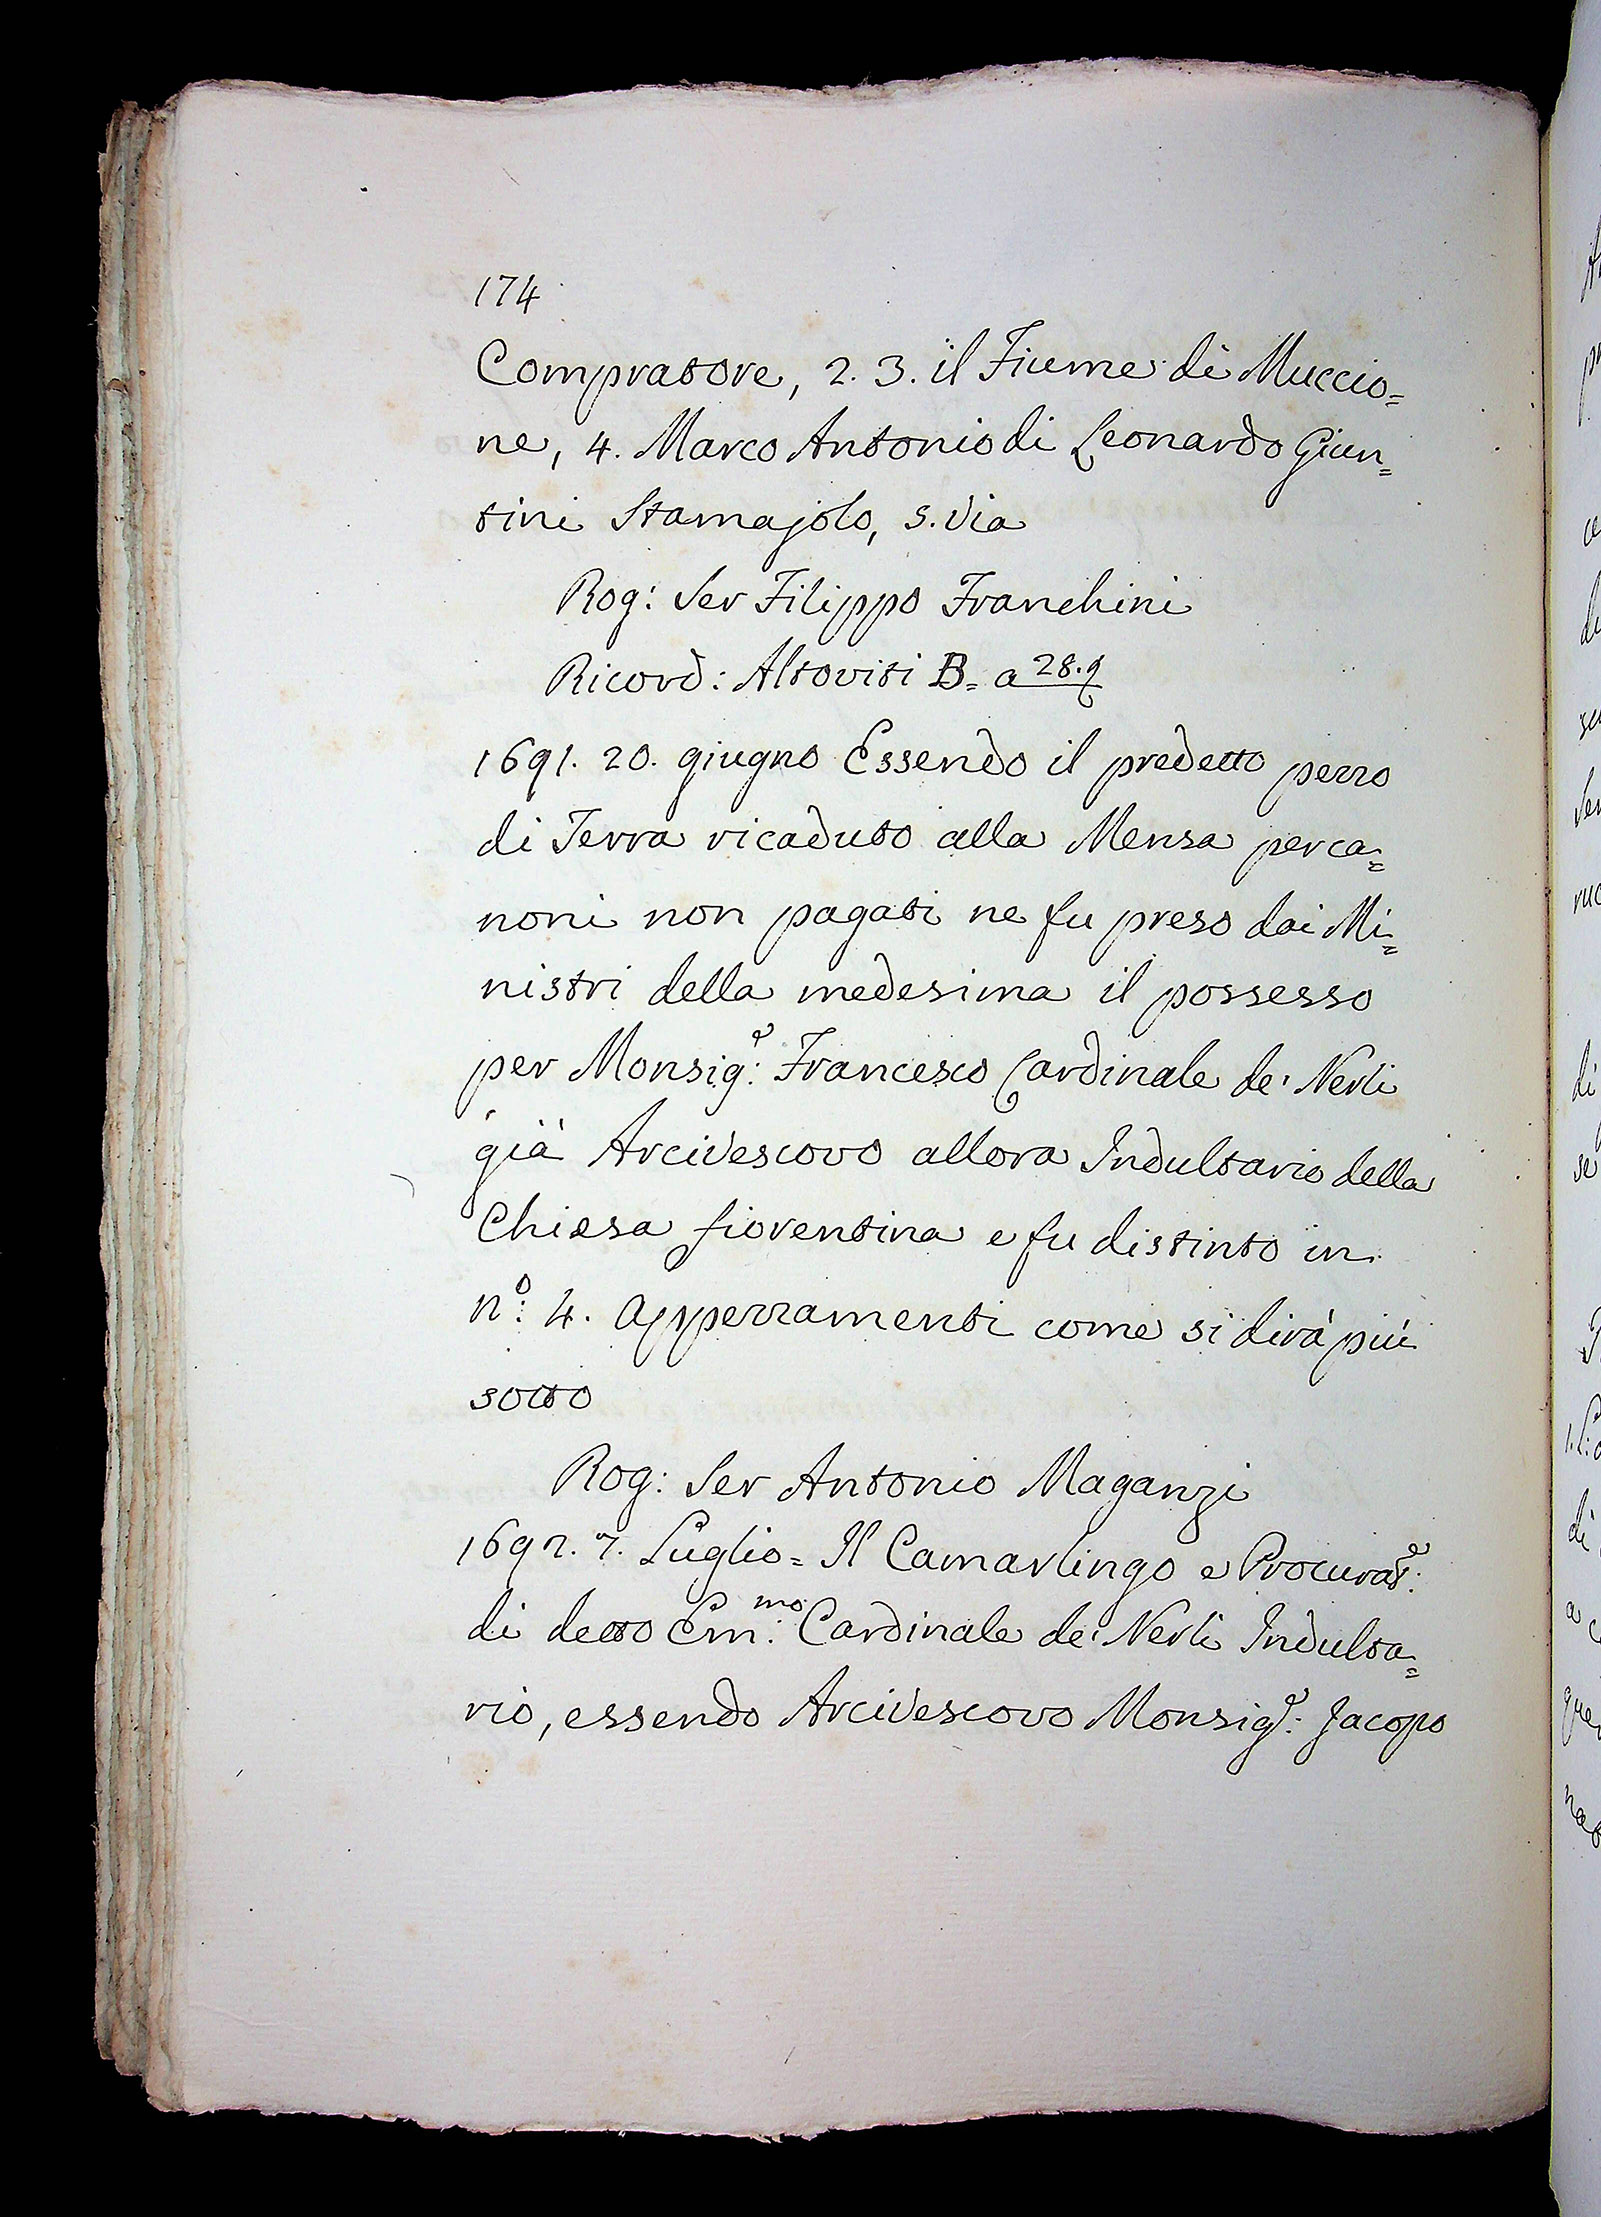 174
Compratore, 2. 3. il Fiume di Muccio=
ne, 4. Marco Antonio di Leonardo Giun=
tini Stamajolo, 5. via
Rog: Ser Filippo Franchini
Ricord: Altoviti B= a 28.
1691. 20. giugno Essendo il predetto pezzo
di Terra ricaduto alla Mensa per ca=
noni non pagati ne fu preso dai Mi=
nistri della medesima il possesso
per Monsig:e Francesco Cardinale de' Nerli
già Arcivescovo allora Indultario della
Chiesa fiorentina e fu distinto in
n:o 4. appezzamenti come si dirà più
sotto
Rog: Ser Antonio Maganzi
1692. 7. Luglio= Il Camarlingo e Procurat:e
di detto Em:mo Cardinale de' Nerli Indulta=
rio, essendo Arcivescovo Monsig:e Jacopo